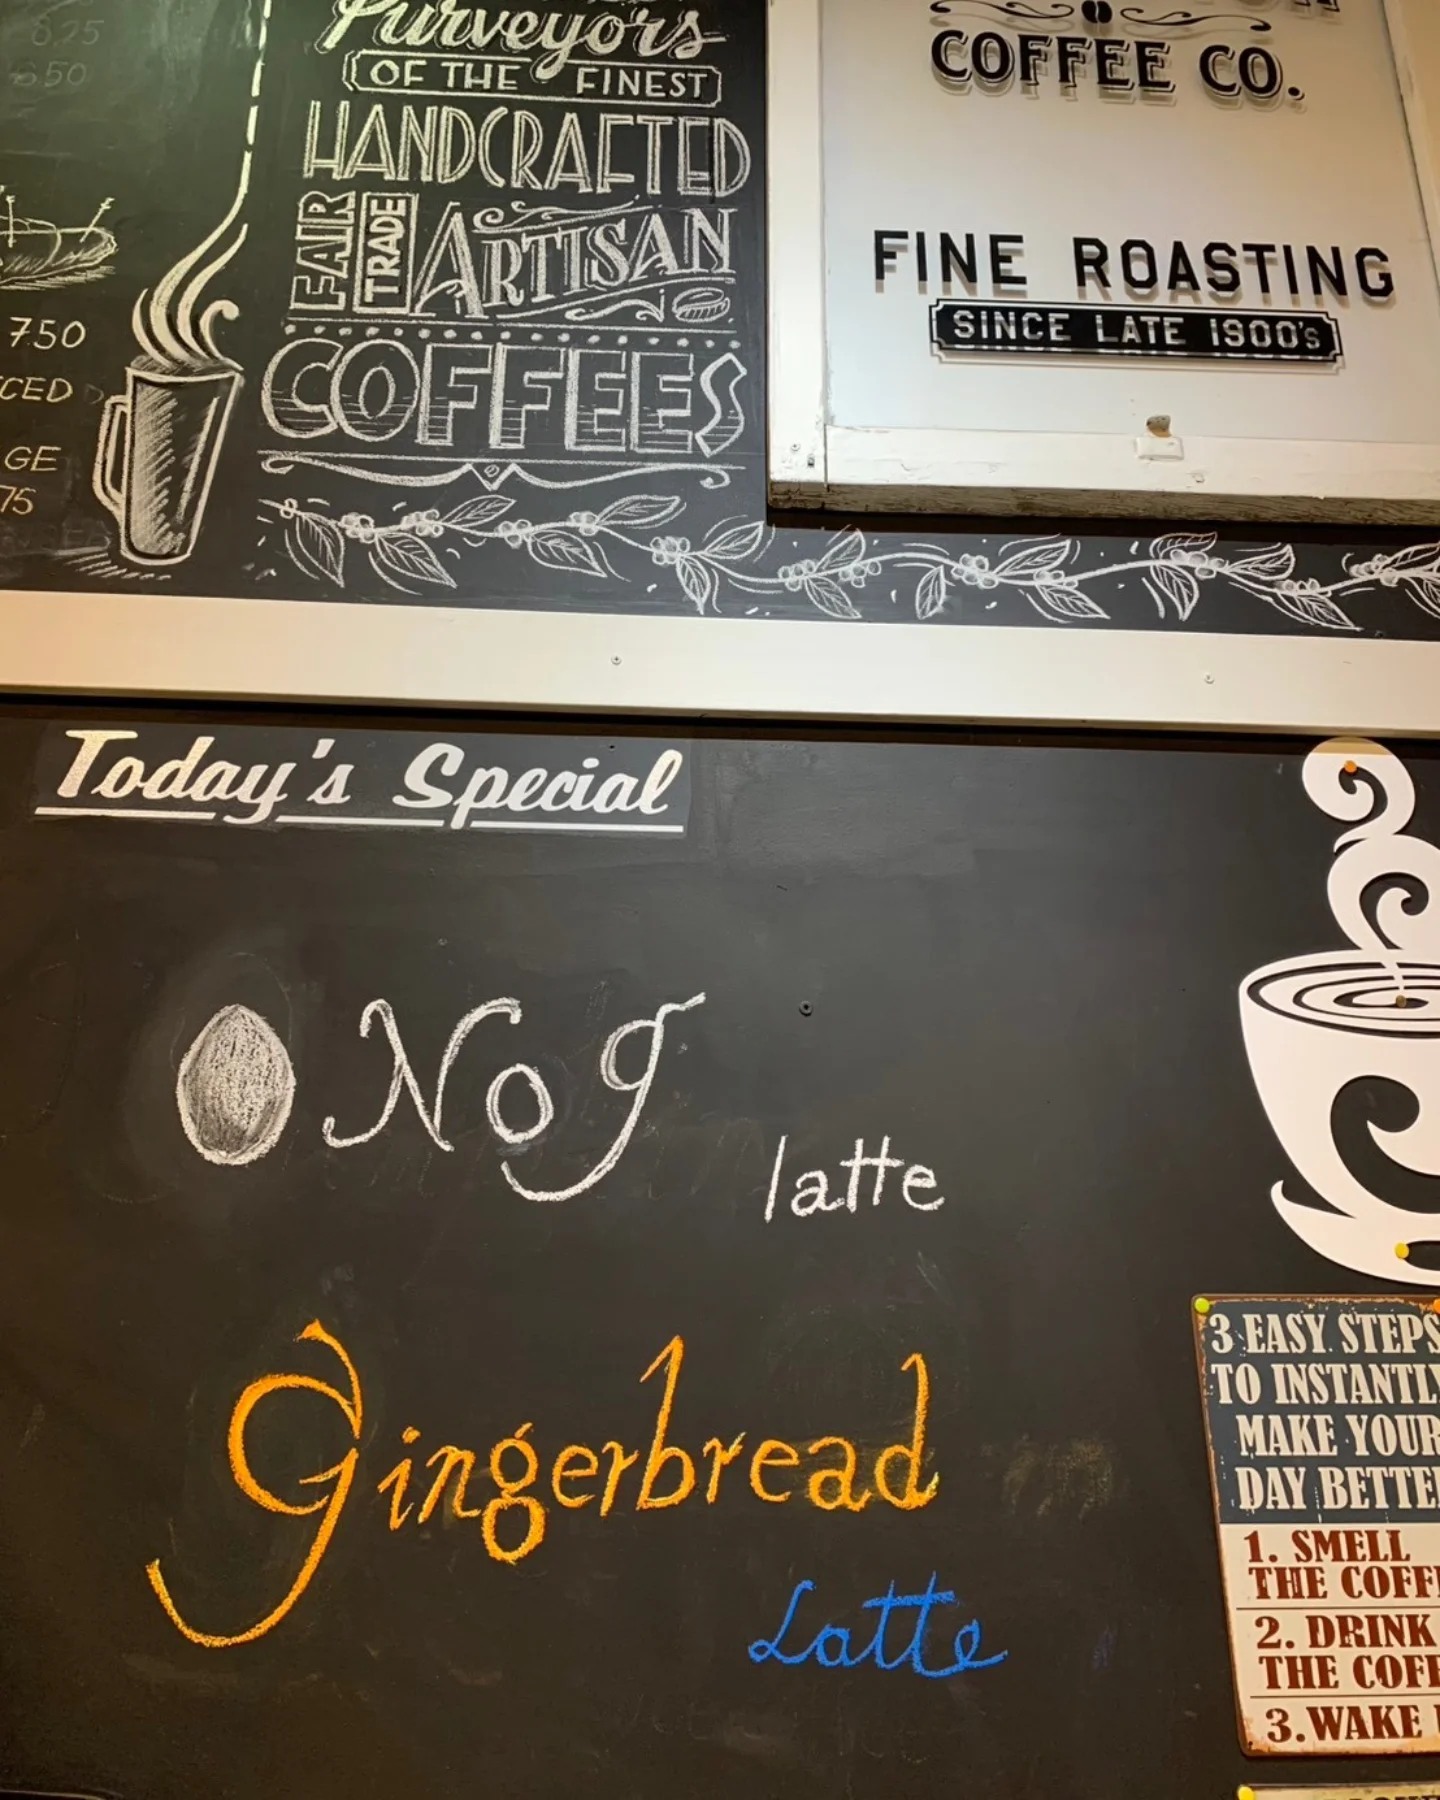 8.25
6.50
7.50
CED
GE
75
Purveyors
OF THE FINEST
HANDCRAFTED
FAIR
TRADE
ARTISAN
COFFEES
COFFEE CO.
FINE ROASTING
SINCE LATE 1900's
Today's Special
Nog
latte
Gingerbread
Latte
3 EASY STEPS
TO INSTANTLY
MAKE YOUR
DAY BETTE
1. SMELL
THE COFF
2. DRINK
THE COFF
3. WAKE